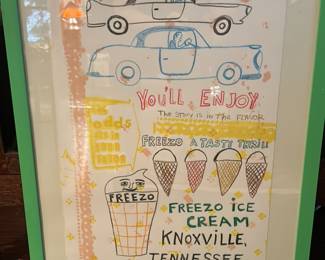 YOU'LL ENJOY
The STORY IS in The FLAVOR
odds
FREEZO A TASTE THRILL
FREEZO
FREEZO ICE
CREAM
KNOXVILLE,
TENNESSEE